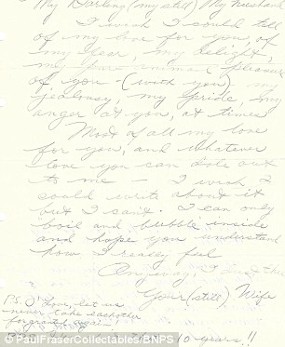 My Darling (my still) My Husband
I wish I could tell
of my love for you, of
my fear, my delight,
my pure animal pleasure
of you - (with you) - my
jealousy, my pride, my
anger at you, at times
Most of all my love
for you, and whatever
love you can dole out
to me - I wish I
could write about it
but I can't. I can only
boil and bubble inside
and hope you understand
how I really feel
Anyway, I
Your (still) Wife
P.S. O'Love, let us
never take each other
for granted again!
10 years!!
© PaulFraserCollectables/BNPS